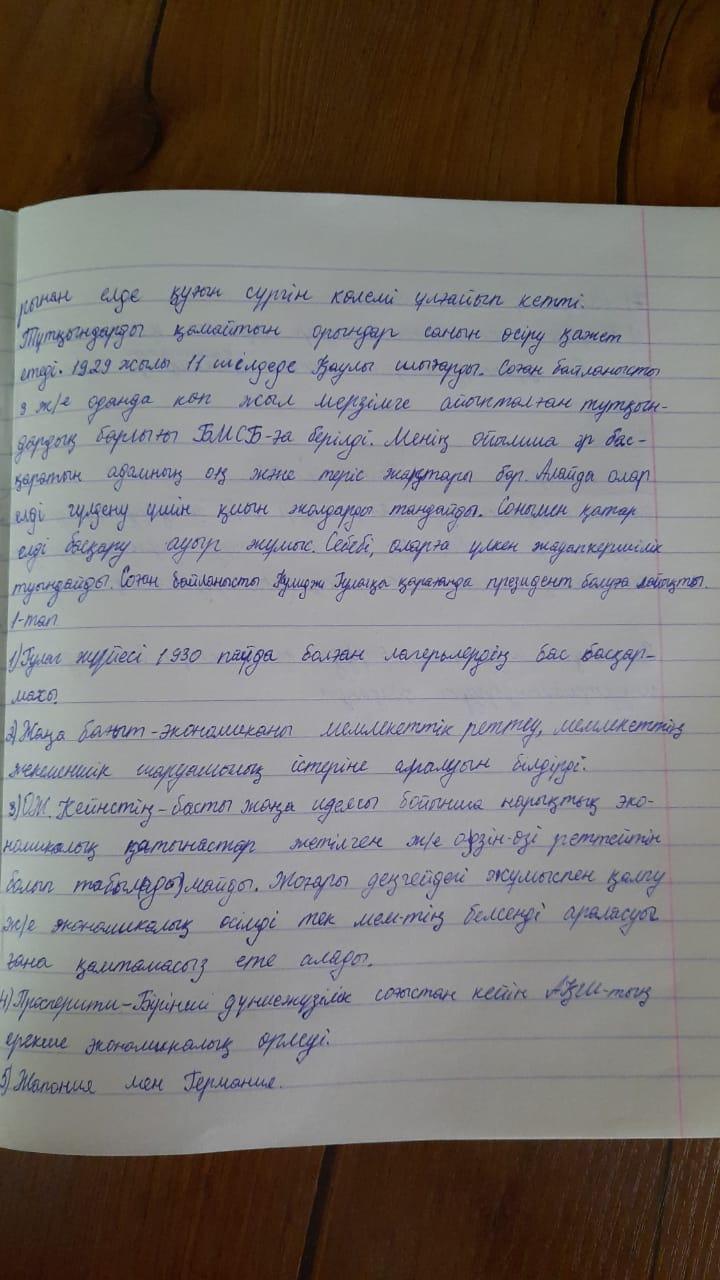 рынан елде қуғын сүргін көлемі ұлғайып кетті.
Тұтқындарды қамайтын орындар санын өсіру қажет
етеді. 1929 жылы 11 шілдеде Қаулы шығарды. Соған байланысты
3 ж/е оданда көп жыл мерзімге айыпталған тұтқын-
дардың барлығы БМСБ-ға берілді. Менің ойымша әр бас-
қаратын адамның оң және теріс жақтары бар. Алайда олар
елді гүлдену үшін қиын жолдарды таңдайды. Сонымен қатар
елді басқару ауыр жұмыс. Себебі, оларға үлкен жауапкершілік
туындайды. Соған байланысты Кулидж Гулагқа қарағанда президент болуға лайықты.
1-тап
1) Гулаг жүйесі 1930 пайда болған лагерьлердің бас басқар-
масы.
2) Жаңа бағыт-экономиканы мемлекеттік реттеу, мемлекеттің
жекеменшік шаруашылық істеріне аралуын білдірді.
3) Ж. Кейнстің-басты жаңа идеясы бойынша нарықтық эко-
номикалық қатынастар жетілген ж/е өзін-өзі реттейтін
болып табыл(ады)майды. Жоғары деңгейдей жұмыспен қамту
ж/е экономикалық өсімді тек мем-тің белсенді араласуы
ғана қамтамасыз ете алады.
4) Просперити-Бірінші дүниежүзілік соғыстан кейін АҚШ-тың
ерекше экономикалық өрлеуі.
5) Жапония мен Германия.